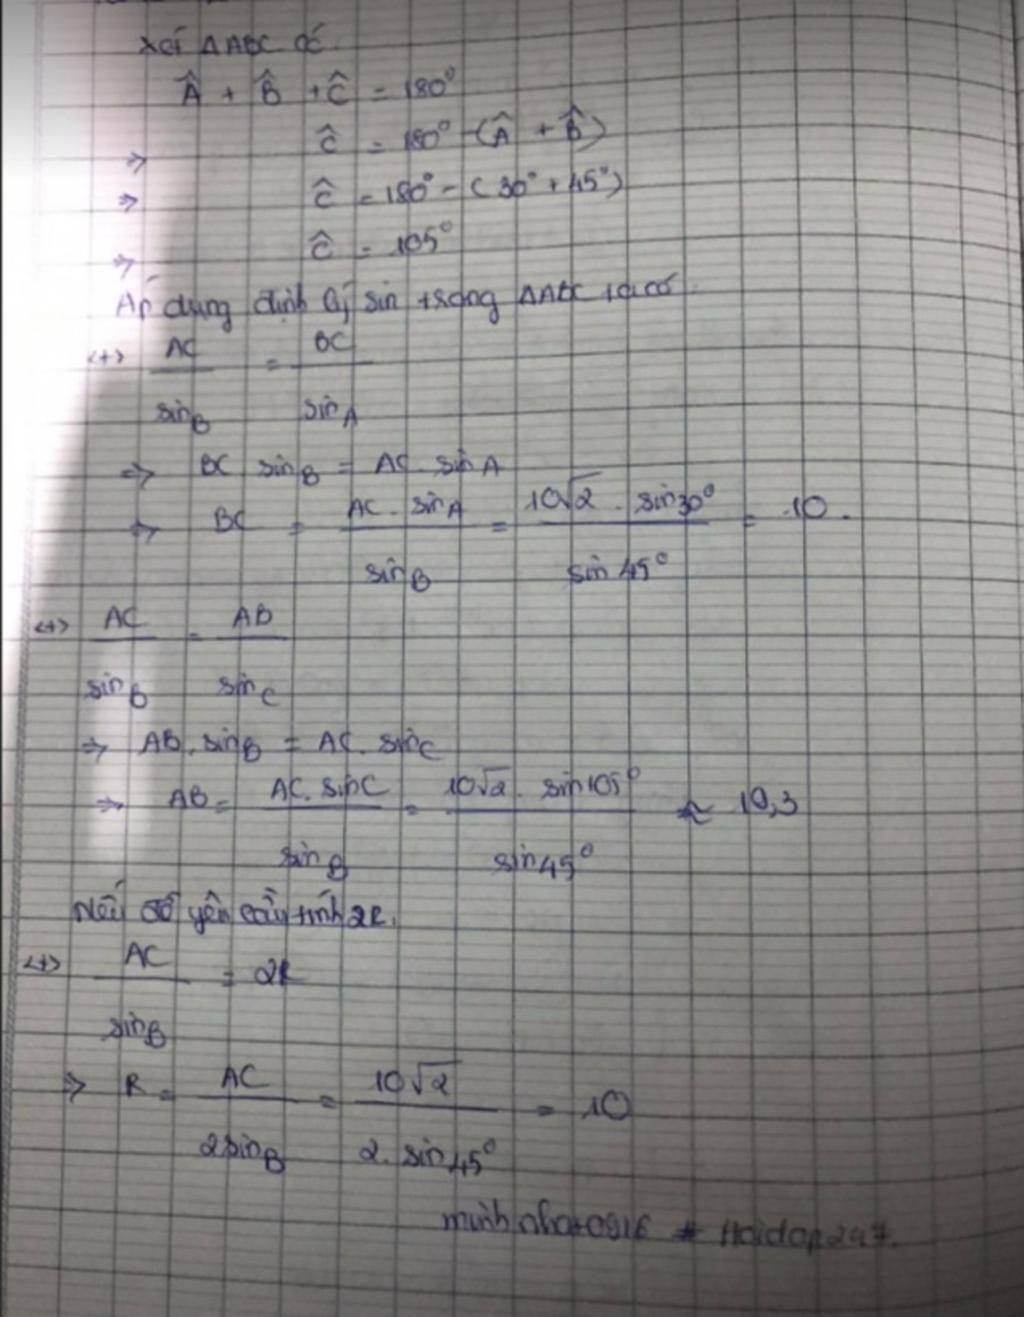 Xét ΔABC có
Â + B̂ + Ĉ = 180°
⇒ Ĉ = 180° - (Â + B̂)
⇒ Ĉ = 180° - (30° + 45°)
⇒ Ĉ = 105°
Áp dụng định lí sin trong ΔABC ta có
<+> AC/sin B = BC/sin A
⇒ BC sin B = AC . sin A
⇒ BC = AC . sin A/sin B = 10√2 . sin 30°/sin 45° = 10.
<+> AC/sin B = AB/sin C
⇒ AB . sin B = AC . sin C
⇒ AB = AC . sin C/sin B = 10√2 . sin 105°/sin 45° ≈ 19,3
Nếu đề yêu cầu tính 2R.
<+> AC/sin B = 2R
⇒ R = AC/2 sin B = 10√2/2 . sin 45° = 10
minhnhat0916 # Hoidap247.